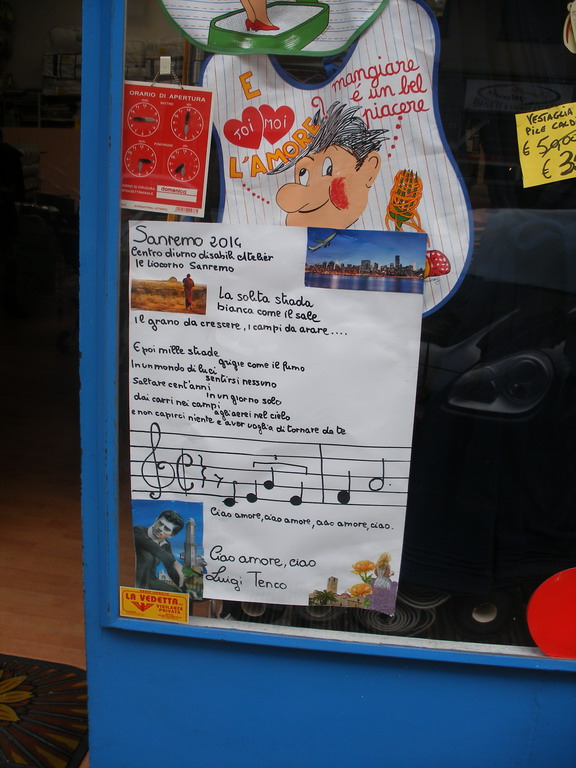 ORARIO DI APERTURA
domenica
E
mangiare
é un bel
piacere
TOI
MOI
L'AMORE
VESTAGLIA
PILE
€
€
Sanremo 2014
Centro diurno disabili Atelièr
le liocorno Sanremo
La solita strada
bianca come il sale
Il grano da crescere, i campi da arare....
E poi mille strade
grigie come il fumo
In un mondo di luci
sentirsi nessuno
Saltare cent'anni
in un giorno solo
dai carri nei campi
agli aerei nel cielo
e non capirci niente e aver voglia di tornare da te
Ciao amore, ciao amore, ciao amore, ciao.
Ciao amore, ciao
Luigi Tenco
LA VEDETTA
VIGILANZA
PRIVATA